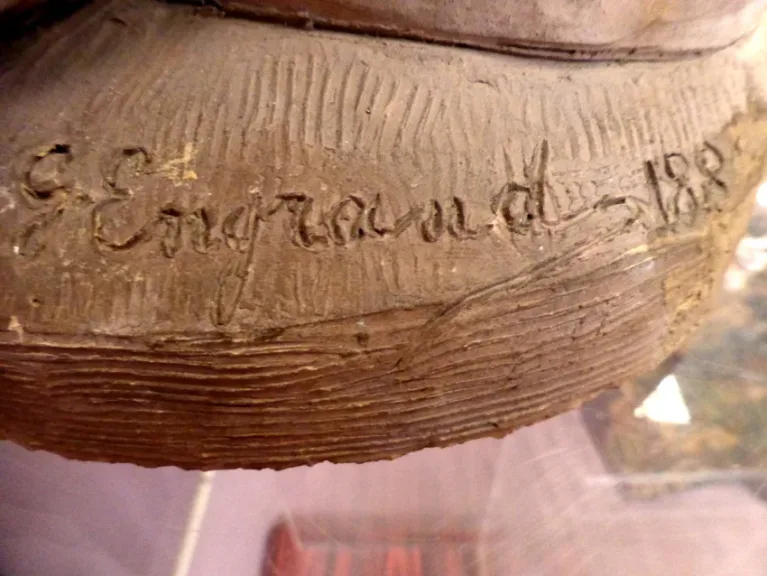 G Engrand - 188